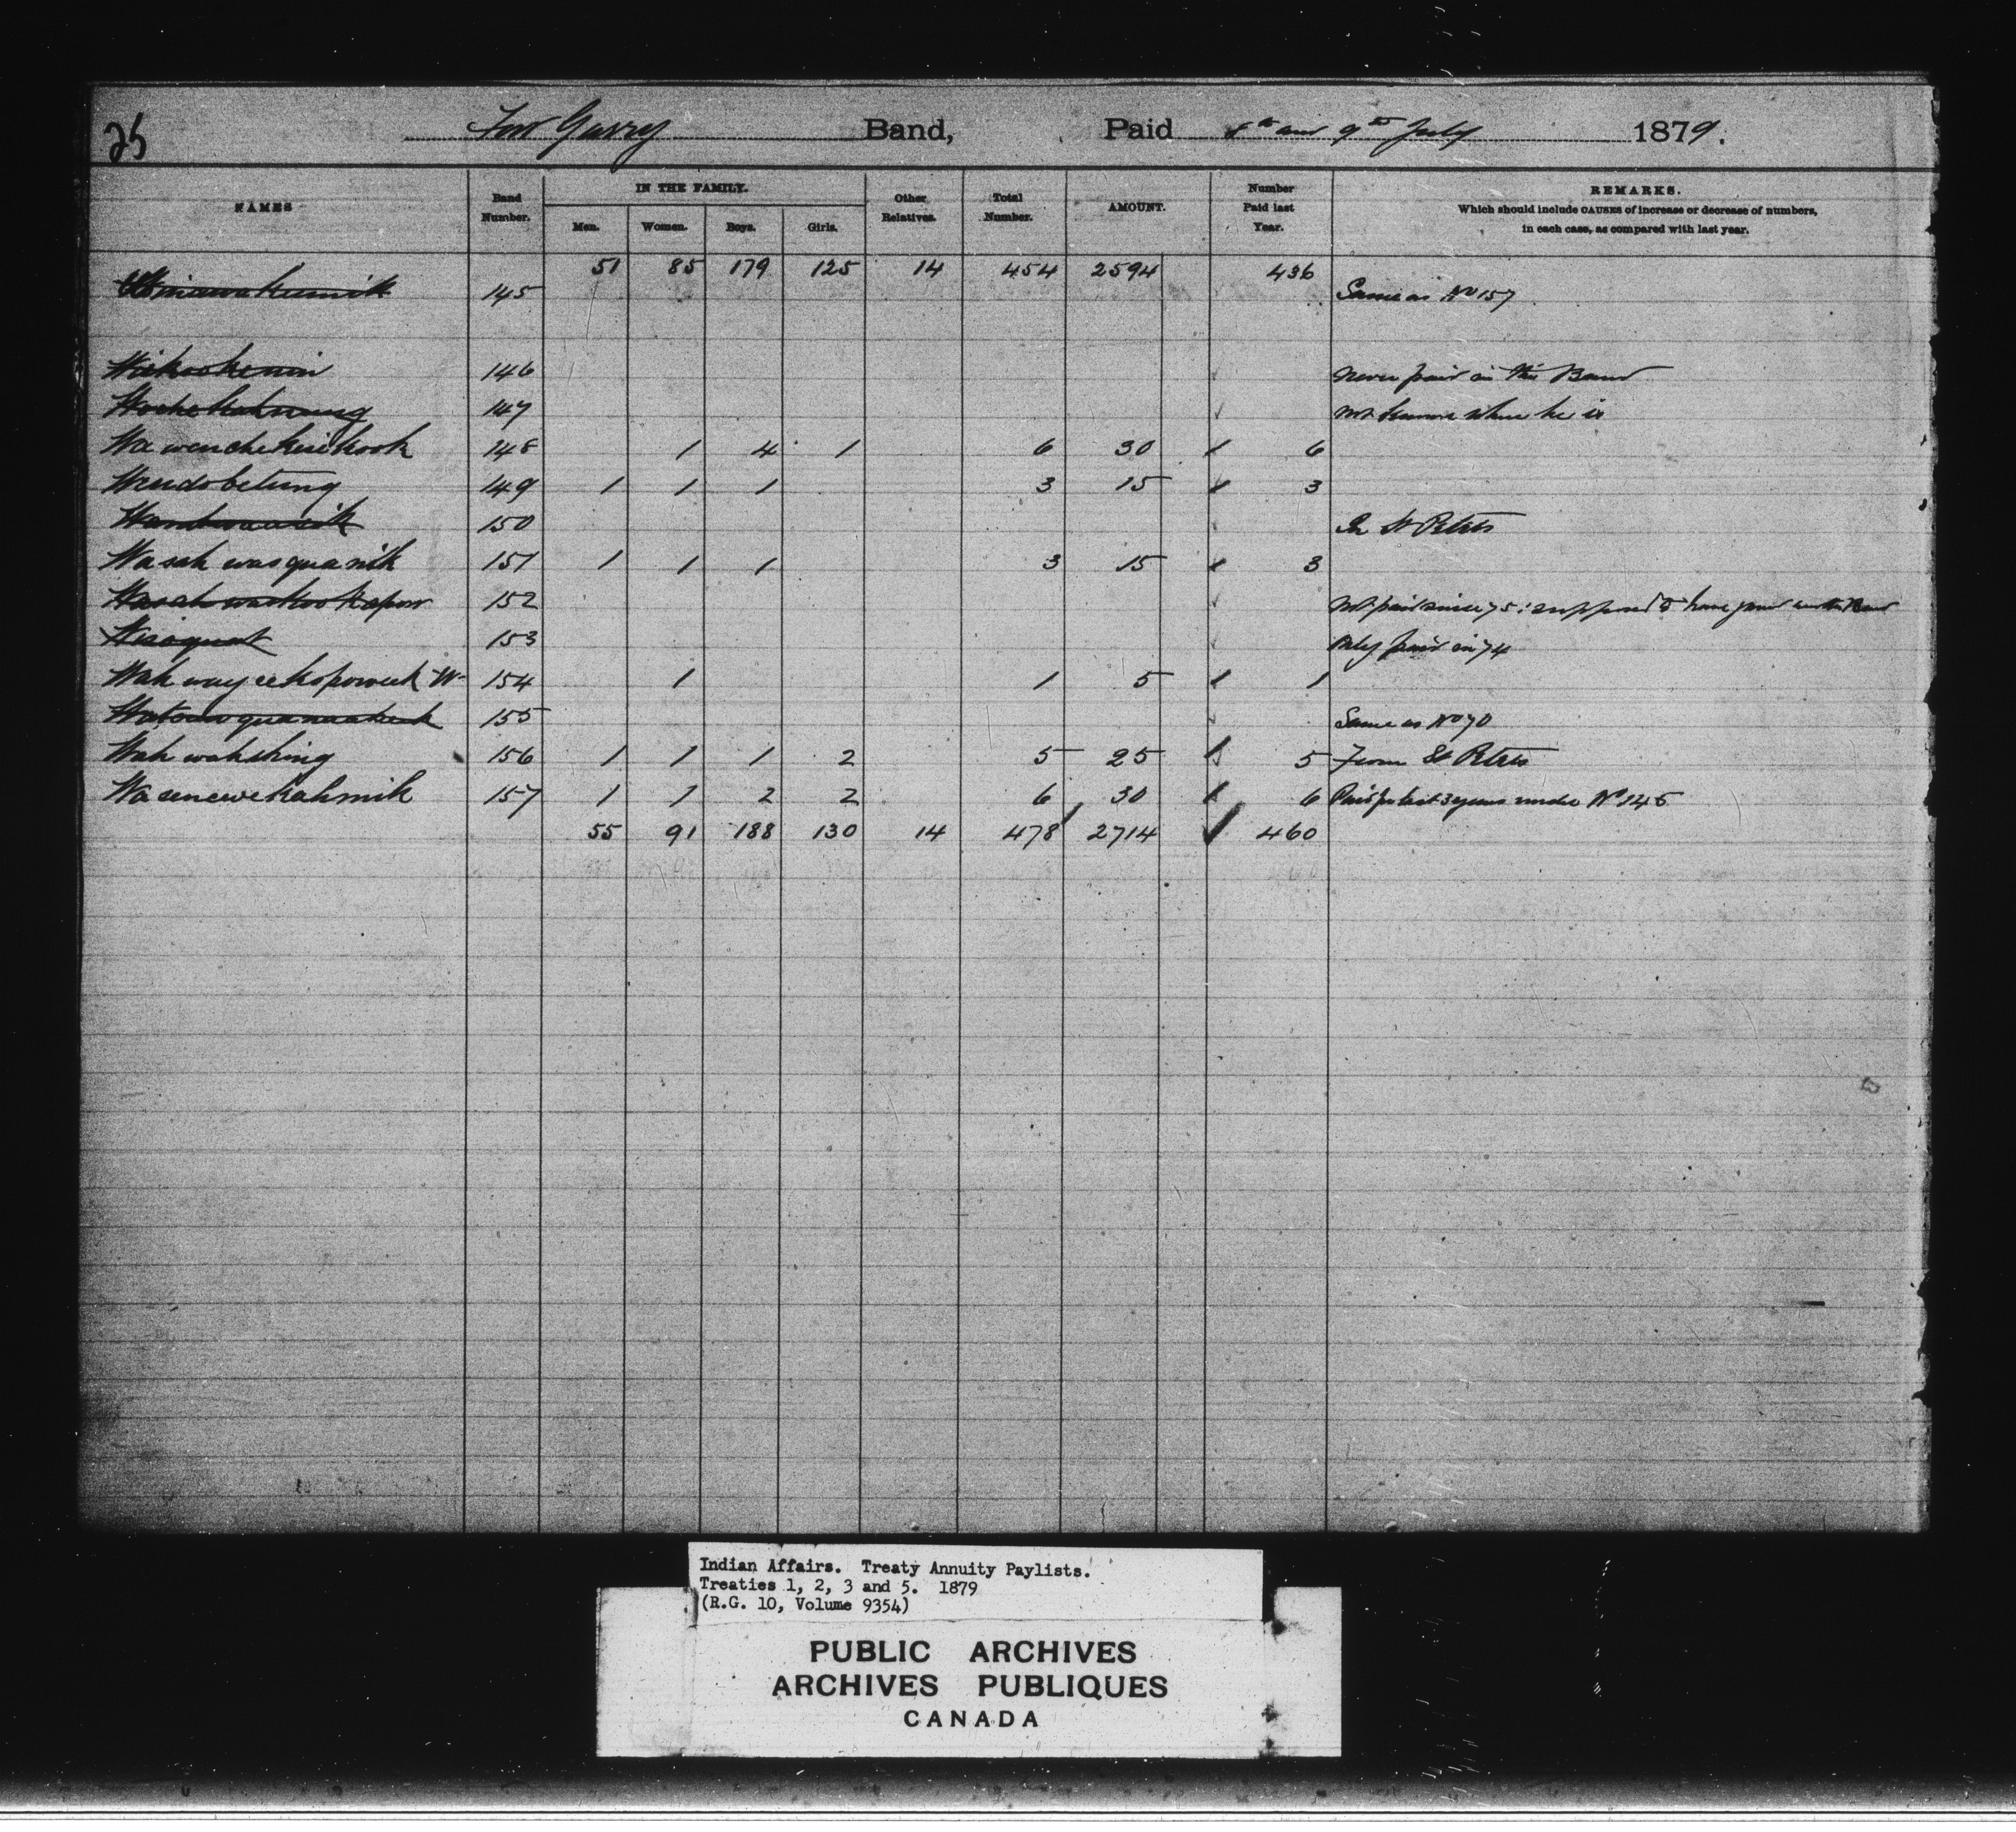 25
Fort Garry Band, Paid 8th and 9th July 1879.
NAMES Band Number. IN THE FAMILY. Men. Women. Boys. Girls. Other Relatives. Total Number. AMOUNT. Number Paid last Year. REMARKS.
Which should include CAUSES of increase or decrease of numbers,
in each case, as compared with last year.
51 85 179 125 14 454 2594 436
145 Same as No 157
146 never paid in this Band
147 not known where he is
Wa wenchekesikook 148 1 4 1 6 30 6
Wendobetung 149 1 1 1 3 15 3
150 In St Peters
Wasah wasquanik 151 1 1 1 3 15 3
152 not paid since 75: supposed to have gone
153 Only paid in 74
154 1 1 5 1
155 Same as No 70
Wah wahshing 156 1 1 1 2 5 25 5 From St Peters
Wasenewekahmik 157 1 1 2 2 6 30 6 Paid for last 3 years under No 145
55 91 188 130 14 478 2714 460
Indian Affairs. Treaty Annuity Paylists.
Treaties 1, 2, 3 and 5. 1879
(R.G. 10, Volume 9354)
PUBLIC ARCHIVES
ARCHIVES PUBLIQUES
CANADA